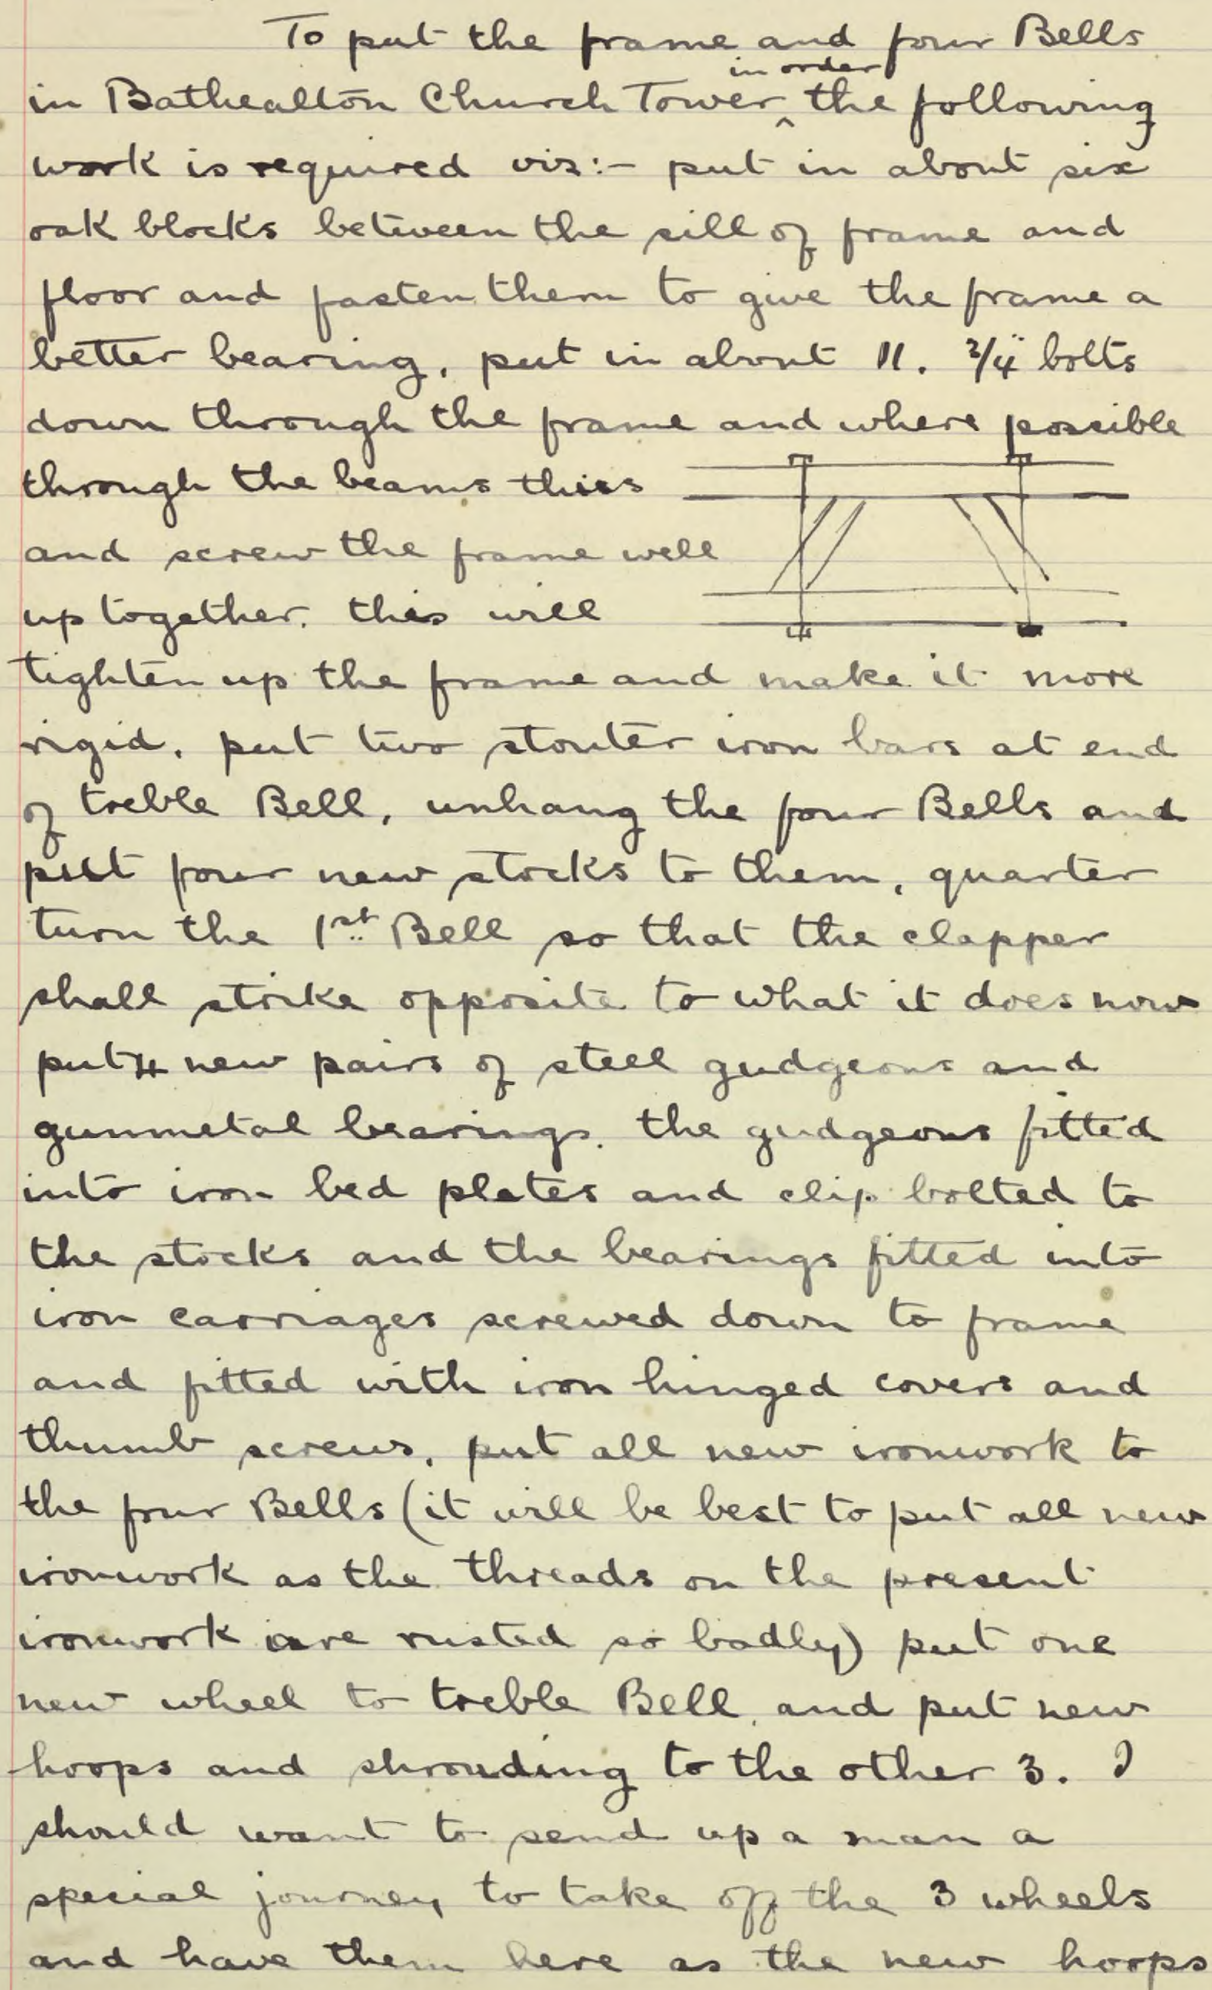 To put the frame and four Bells
in Bathealton Church Tower ^in order the following
work is required viz:- put in about six
oak blocks between the sill of frame and
floor and fasten them to give the frame a
better bearing, put in about 11. 3/4" bolts
down through the frame and where possible
through the beams this
and screw the frame well
up together. this will
tighten up the frame and make it more
rigid, put two stouter iron bars at end
of treble Bell, unhang the four Bells and
put four new stocks to them, quarter
turn the 1st Bell so that the clapper
shall strike opposite to what it does now
put 4 new pairs of steel gudgeons and
gunmetal bearings. the gudgeons fitted
into iron bed plates and clip bolted to
the stocks and the bearings fitted into
iron carriages screwed down to frame
and fitted with iron hinged covers and
thumb screws, put all new ironwork to
the four Bells (it will be best to put all new
ironwork as the threads on the present
ironwork are rusted so badly) put one
new wheel to treble Bell, and put new
hoops and shrouding to the other 3. I
should want to send up a man a
special journey to take off the 3 wheels
and have them here as the new hoops